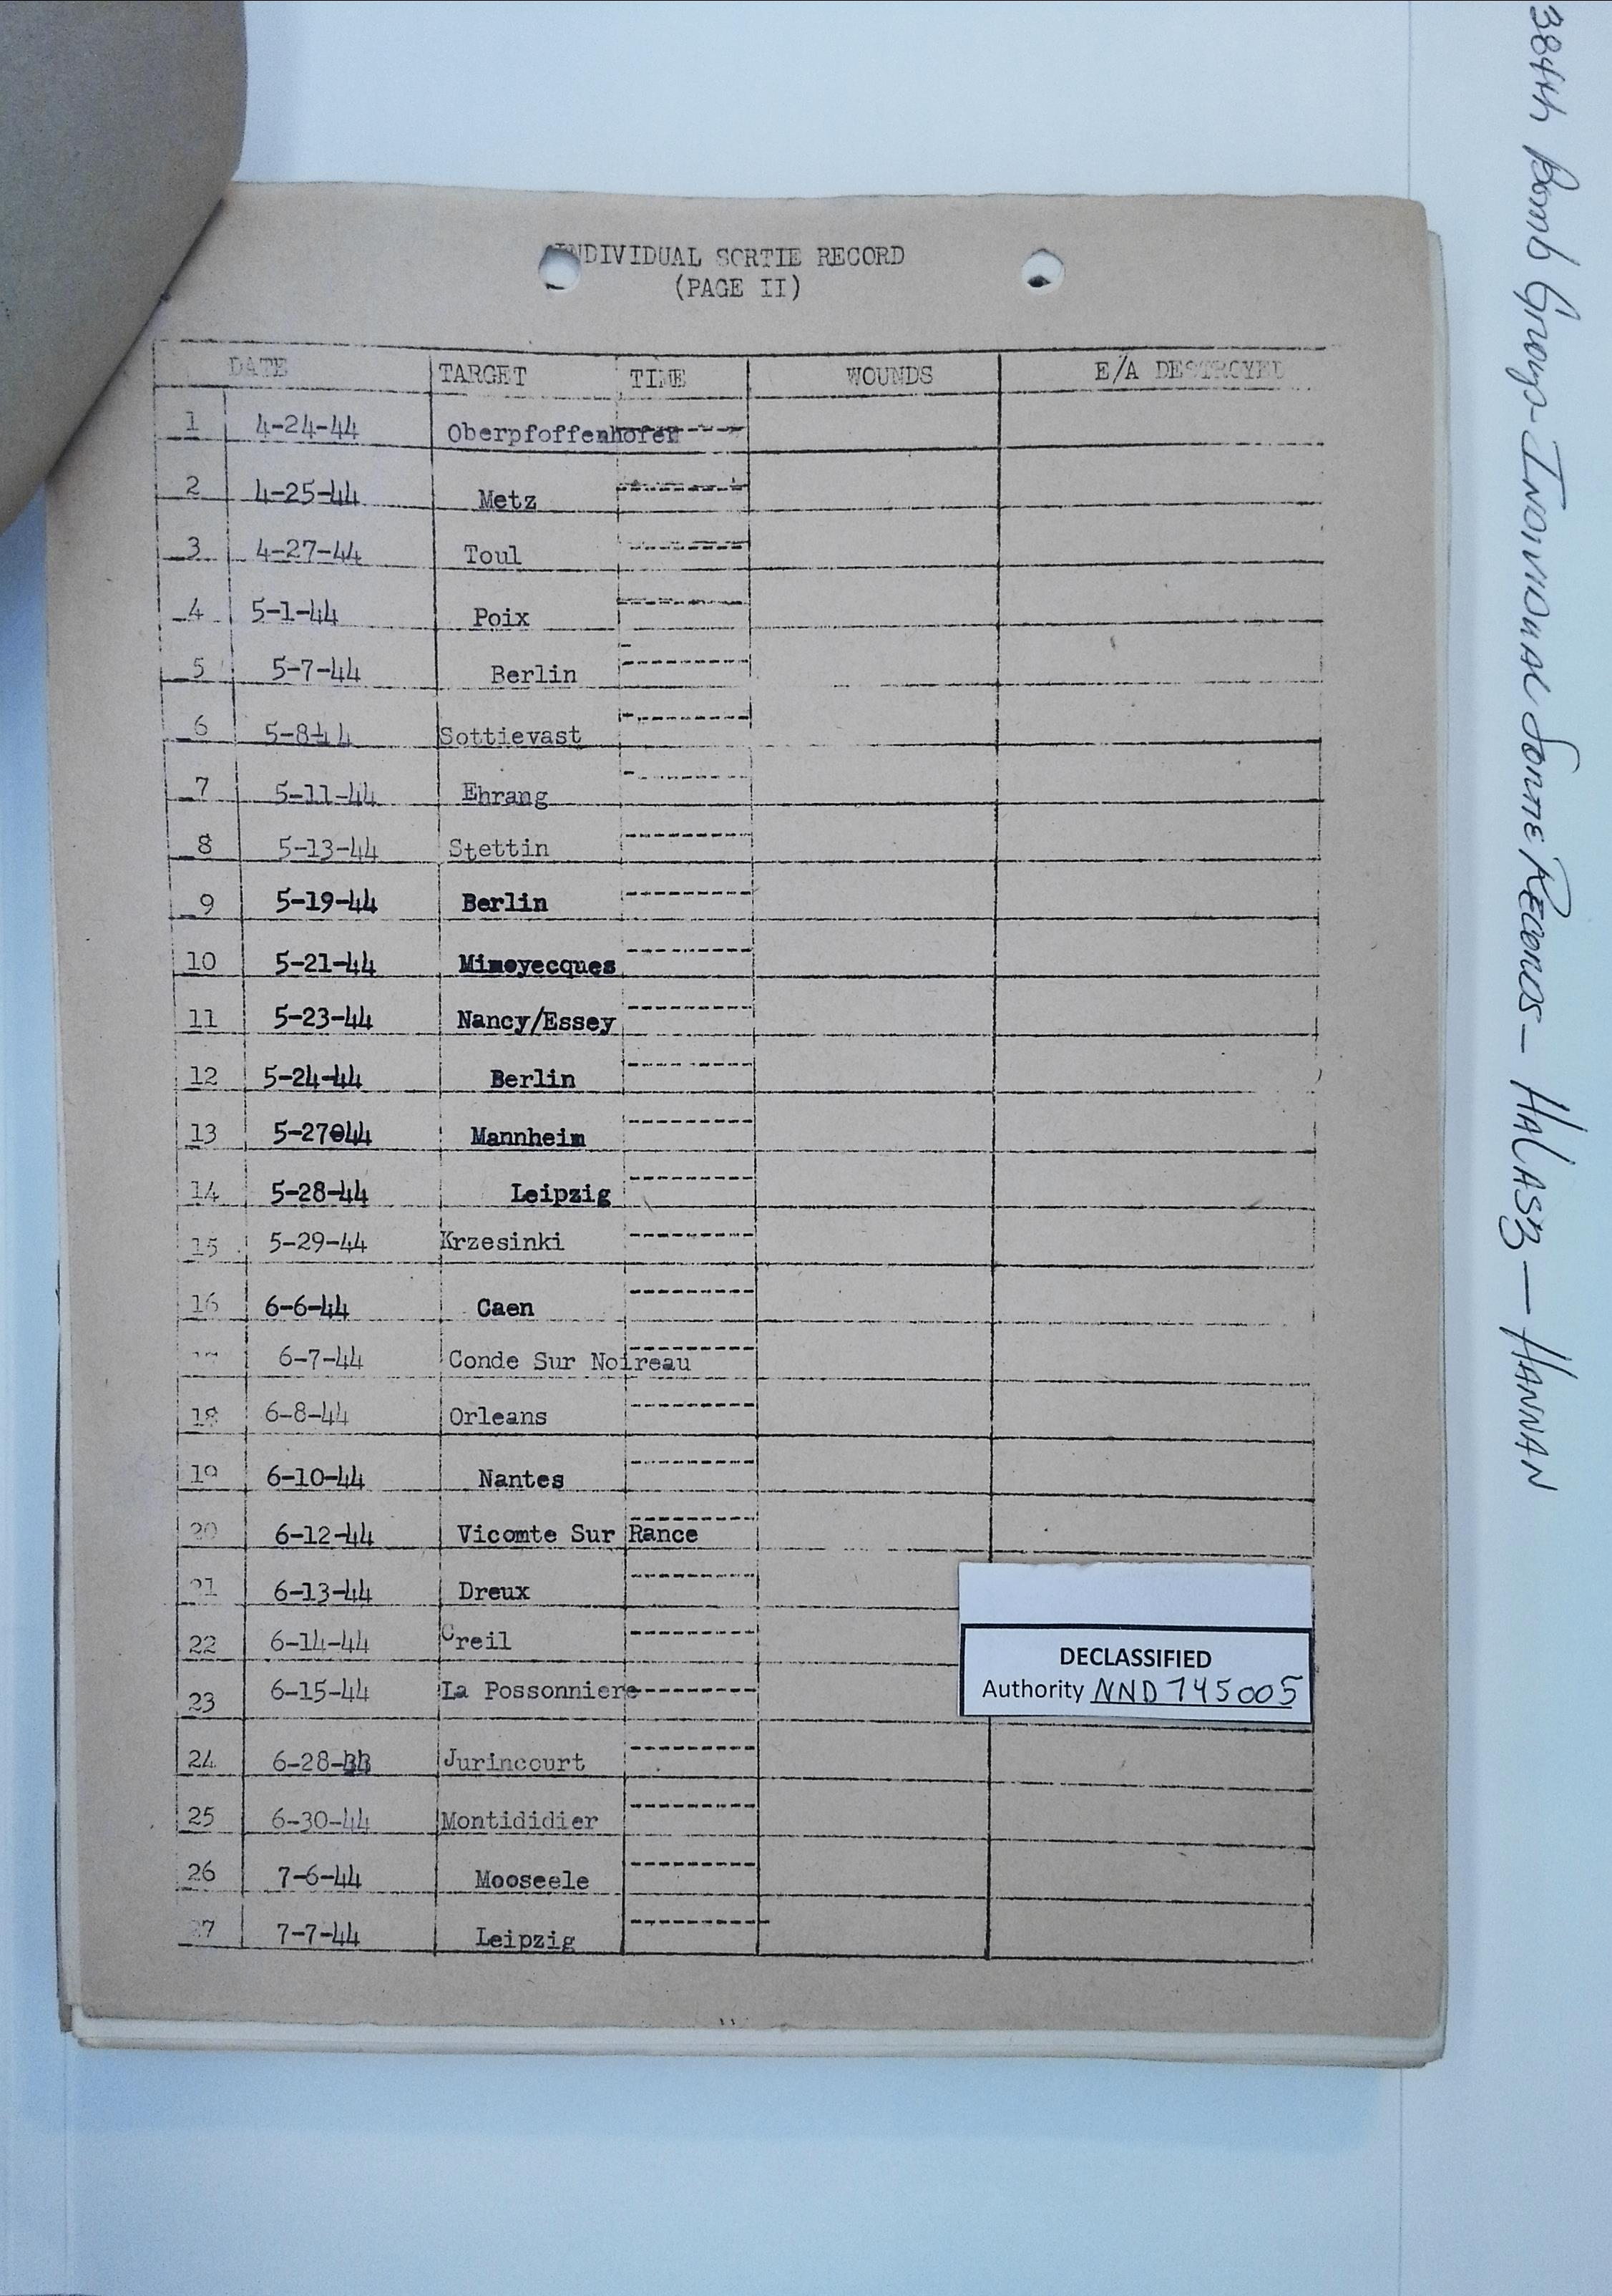 INDIVIDUAL SORTIE RECORD
(PAGE II)
DATE TARGET TIME WOUNDS E/A DESTROYED
1 4-24-44 Oberpfoffenhofen
2 4-25-44 Metz
3 4-27-44 Toul
4 5-1-44 Poix
5 5-7-44 Berlin
6 5-8-44 Sottievast
7 5-11-44 Ehrang
8 5-13-44 Stettin
9 5-19-44 Berlin
10 5-21-44 Mimoyecques
11 5-23-44 Nancy/Essey
12 5-24-44 Berlin
13 5-27044 Mannheim
14 5-28-44 Leipzig
15 5-29-44 Krzesinki
16 6-6-44 Caen
6-7-44 Conde Sur Noireau
18 6-8-44 Orleans
19 6-10-44 Nantes
20 6-12-44 Vicomte Sur Rance
21 6-13-44 Dreux
22 6-14-44 Creil
23 6-15-44 La Possonniere
24 6-28-44 Jurincourt
25 6-30-44 Montididier
26 7-6-44 Mooseele
27 7-7-44 Leipzig
DECLASSIFIED
Authority NND 745005
384th Bomb Group - Individual Sortie Records - HALASZ - HANNAN